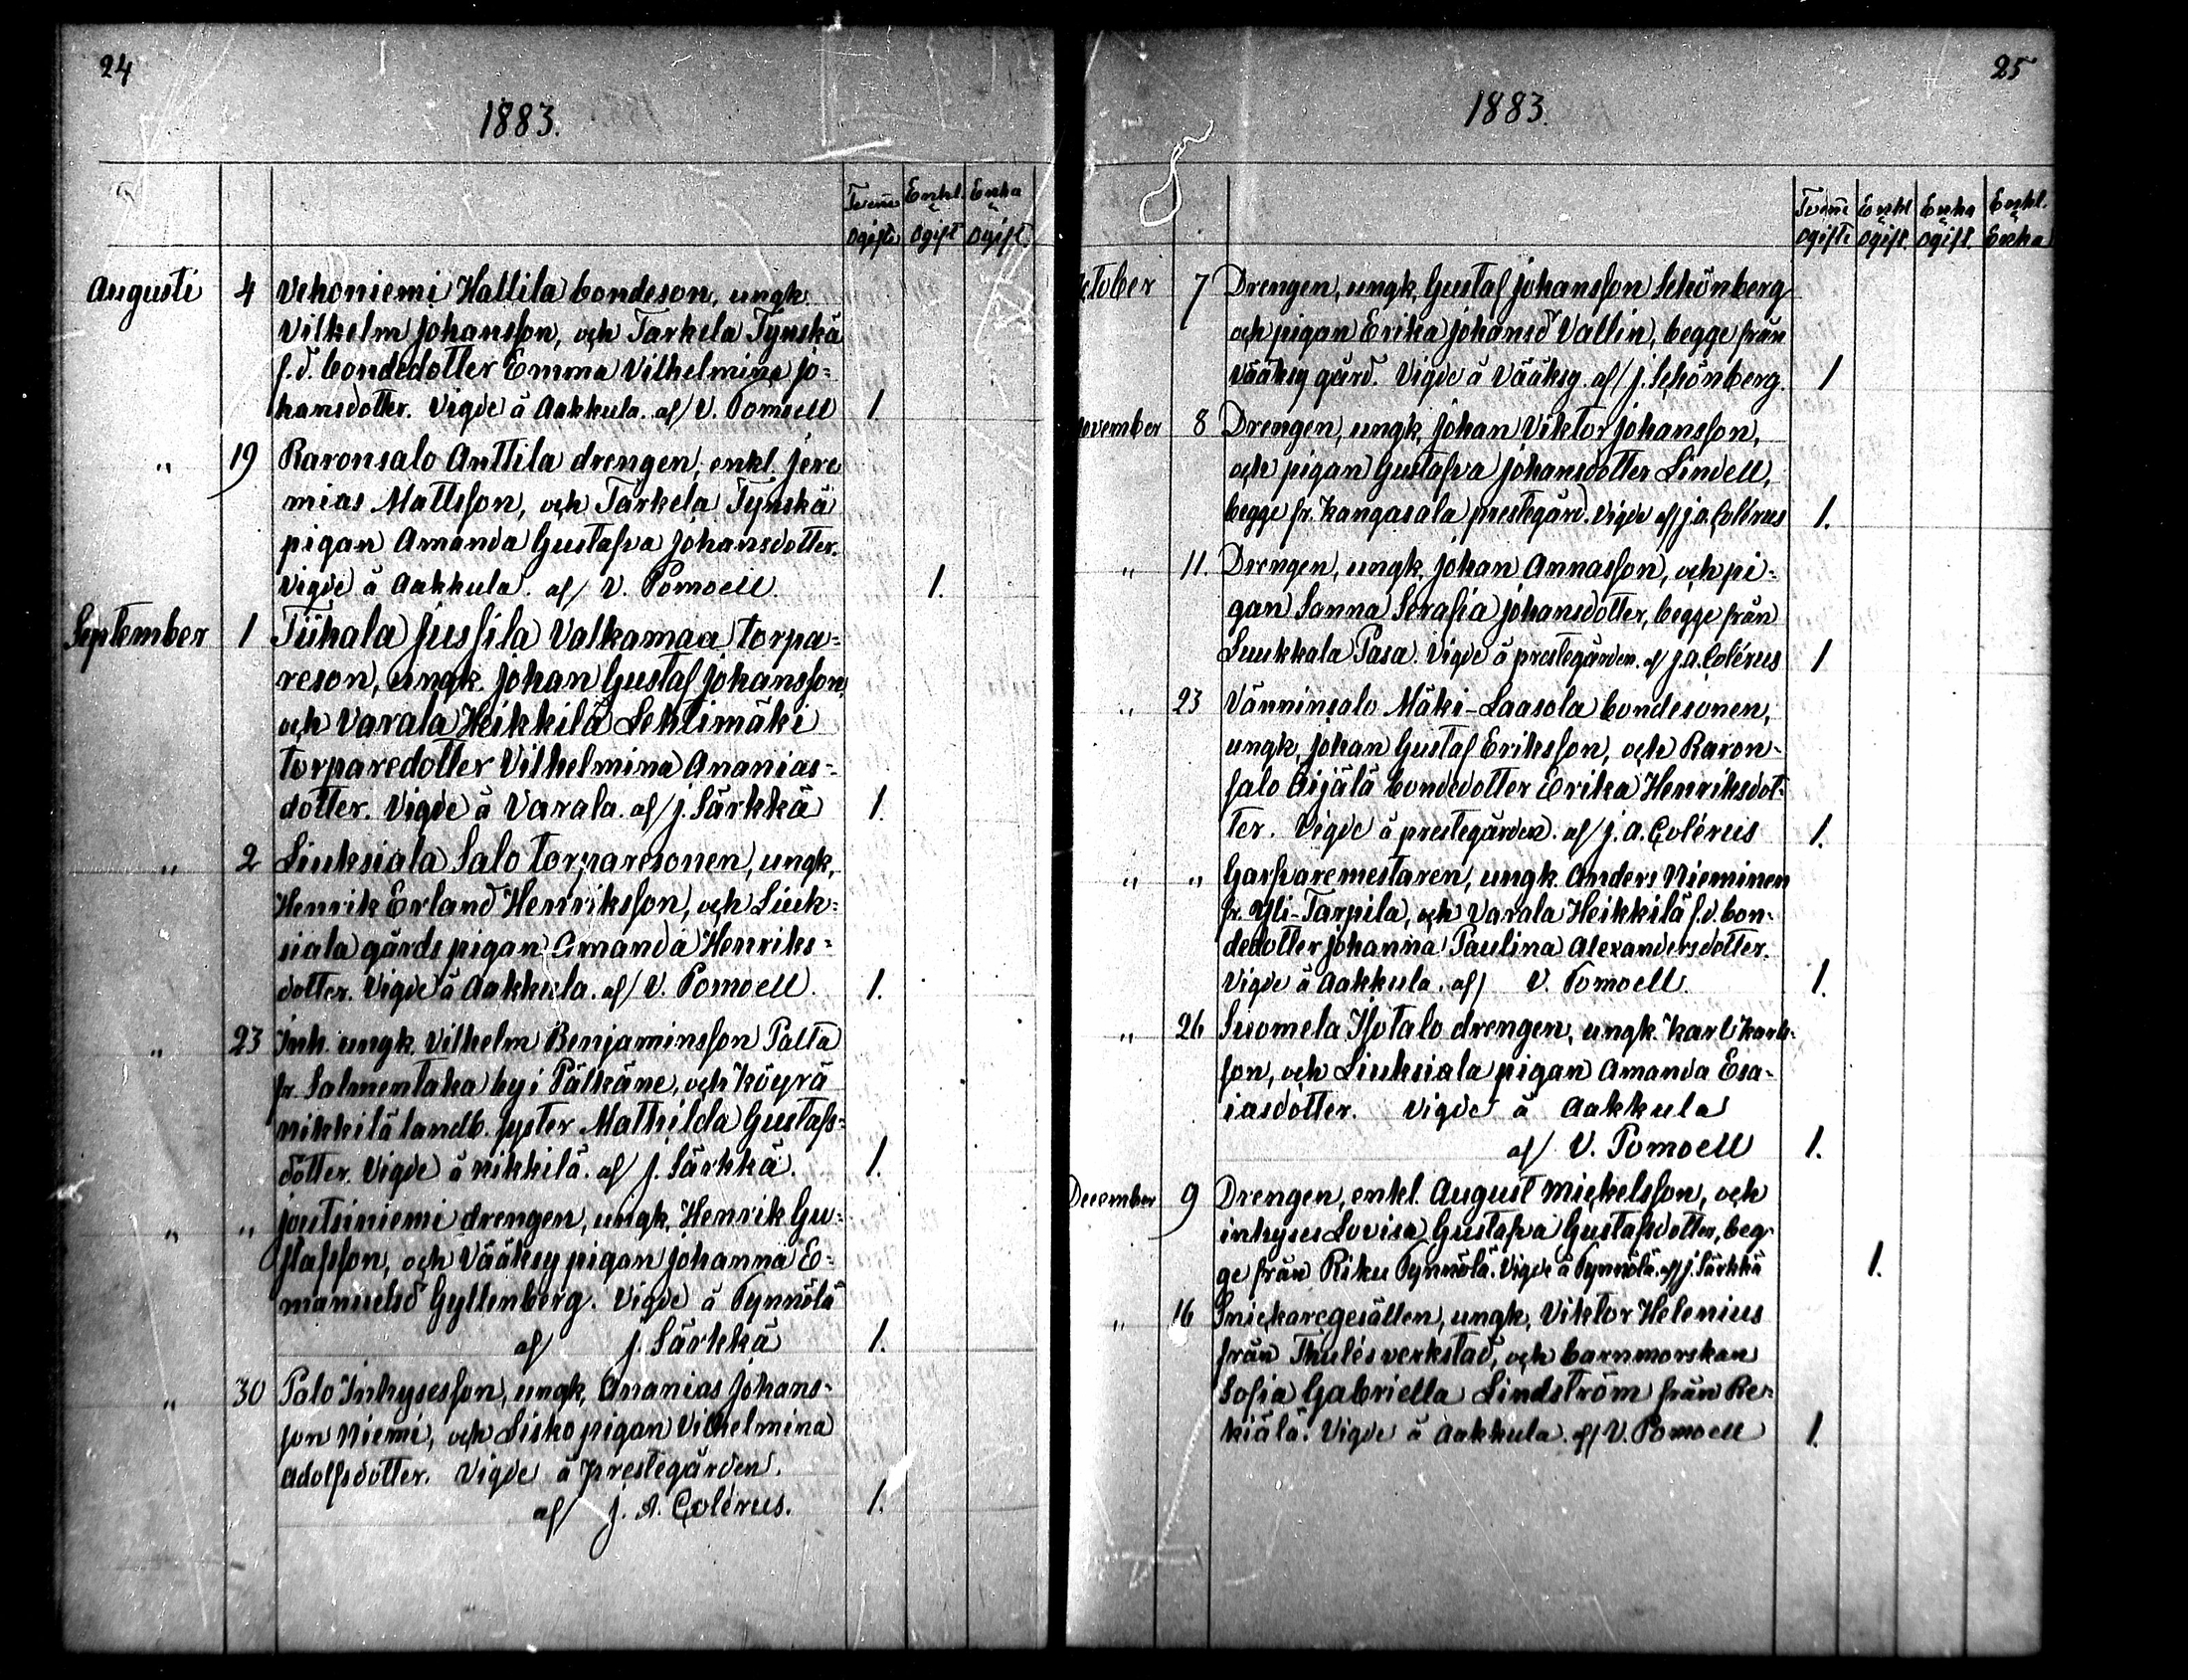 24
1883.
Tvenne Enkl. Enka
ogifte ogift ogift
Augusti 4 Vehoniemi Hallila bondeson, ungk.
Vilhelm Johansson, och Tarkela Tynskä
f.d. bondedotter Emma Vilhelmina Jo=
hansdotter. Vigde å Aakkula. af/ V. Pomoell 1
" 19 Raronsalo Anttila drengen, enkl. Jere
mias Mattsson, och Tarkela Tynskä
pigan Amanda Gustafva Johansdotter.
Vigde å Aakkula. af/ V. Pomoell. 1.
September 1 Tiihala Jussila Valkamaa torpa=
reson, ungk. Johan Gustaf Johansson,
och Varala Heikkilä Lehtimäki
torparedotter Vilhelmina Ananias=
dotter. Vigde å Varala. af/ J. Särkkä 1.
" 2 Liuksiala Salo torparesonen, ungk,
Henrik Erland Henriksson, och Liuk=
siala gårds pigan Amanda Henriks=
dotter. Vigde å Aakkula. af/ V. Pomoell. 1.
" 23 Inh. ungk. Vilhelm Benjaminsson Palta
fr. Salmentaka by i Pälkäne, och Köyrä
Nikkilä landb. syster Mathilda Gustafs=
dotter. Vigde å Nikkilä. af/ J. Särkkä. 1.
" " Joutsiniemi drengen, ungk, Henrik Gu=
stafsson, och Vääksy pigan Johanna E=
manuelsd Gyllenberg. Vigde å Tynnölä
af/ J. Särkkä 1.
" 30 Palo Inhysesson, ungk, Ananias Johans=
son Niemi, och Lisko pigan Vilhelmina
Adolfsdotter. Vigde å prestegården.
af/ J. A. Colérus. 1.
25
1883.
Tvenne Enkl Enka Enkl.
ogifte ogift. ogift. Enka
October 7 Drengen, ungk, Gustaf Johansson Schönberg
och pigan Erika Johansd Vallin, begge från
Vääksy gård. Vigde å Vääksy. af/ J. Schönberg. 1
November 8 Drengen, ungk, Johan Viktor Johansson,
och pigan Gustafva Johansdotter Lindell,
begge fr. Kangasala prestegård. Vigde af/ J.A. Colérus 1.
" 11. Drengen, ungk, Johan Annasson, och pi=
gan Sanna Serafia Johansdotter, begge från
Luukkala Pasa. Vigde å prestegården. af J.A. Colérus 1
" 23 Vänninsalo Mäki-Laasola bondesonen,
ungk, Johan Gustaf Eriksson, och Raron-
salo Äijälä bondedotter Erika Henriksdot=
ter. Vigde å prestegården. af/ J. A. Colérus 1.
" " Garfvaremestaren, ungk. Anders Nieminen
fr. Yli-Tarpila, och Varala Heikkilä f.d. bon=
dedotter Johanna Paulina Alexandersdotter.
Vigde å Aakkula. af/ V. Pomoell. 1.
" 26 Suomela Isotalo drengen, ungk. Karl Karls=
son, och Liuksiala pigan Amanda Esa-
iasdotter. Vigde å Aakkula
af/ V. Pomoell 1.
December 9 Drengen, enkl. August Mickelsson, och
inhyses Lovisa Gustafva Gustafsdotter, beg-
ge från Riku Tynnölä. Vigde å Tynnölä. af/ J. Särkkä 1.
" 16 Snickaregesällen, ungk, Viktor Helenius
från Thulés verkstad, och barnmorskan
Sofia Gabriella Lindström från Re=
kiälä. Vigde å Aakkula. af/ V. Pomoell 1.